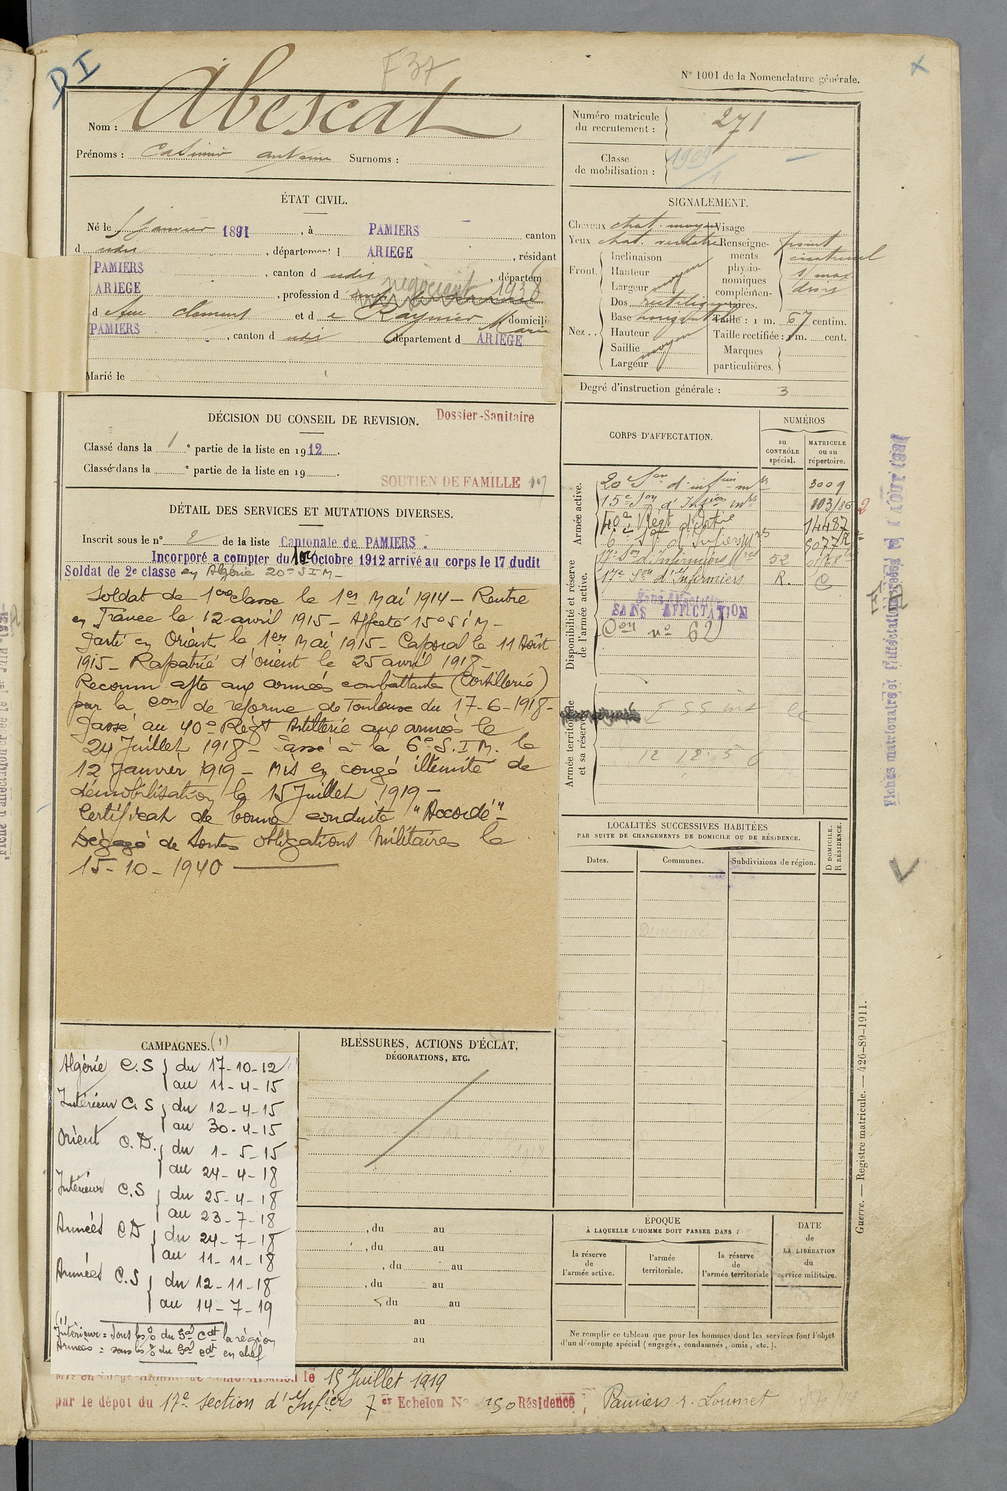 D I
F 37
N° 1001 de la Nomenclature générale.
Nom : Abescat
Prénoms : Casimir Antoine Surnoms :
Numéro matricule du recrutement : 271
Classe de mobilisation : 1909
ÉTAT CIVIL.
Né le janvier 1891, à PAMIERS canton
d udit, département d ARIEGE, résidant
PAMIERS, canton d udit, départem
ARIEGE, profession d négociant 1938
d feu Clément et d e Raynier Marie domicili
PAMIERS, canton d udit département d ARIEGE
Marié le
SIGNALEMENT.
Cheveux chat. moyen Visage
Yeux chat. verdatre
Front. Inclinaison
Hauteur
Largeur moyen
Nez. Dos rectiligne
Base
Hauteur
Saillie
Largeur moyen
Renseignements physionomiques complémentaires.
front cicatriciel
Taille : 1 m. 67 centim.
Taille rectifiée : 1 m. cent.
Marques particulières.
Degré d'instruction générale : 3
DÉCISION DU CONSEIL DE REVISION.
Dossier-Sanitaire
Classé dans la 1e partie de la liste en 1912.
Classé dans la e partie de la liste en 19
SOUTIEN DE FAMILLE
DÉTAIL DES SERVICES ET MUTATIONS DIVERSES.
Inscrit sous le n° 2 de la liste Cantonale de PAMIERS.
Incorporé a compter du 10 Octobre 1912 arrivé au corps le 17 dudit
Soldat de 2e classe en Algérie 20e S I M -
Soldat de 1ere classe le 1er Mai 1914 - Rentre
en France le 12 avril 1915 - Affecté 15e S I M -
Parti en Orient le 1er Mai 1915 - Caporal le 11 Août
1915 - Rapatrié d'orient le 25 avril 1918 -
Reconnu apte aux armées combattantes (Artillerie)
par la Con de réforme de Toulouse du 17-6-1918 -
Passé au 40e Régt Artillerie aux armées le
24 Juillet 1918 - Passé à la 6e S.I.M. le
12 Janvier 1919 - Mis en congé illimité de
démobilisation le 15 Juillet 1919 -
Certificat de bonne conduite "Accordé" -
Dégagé de toutes obligations Militaires le
15-10-1940
CORPS D'AFFECTATION.
NUMÉROS
au contrôle spécial.
MATRICULE ou au répertoire.
Armée active.
20e Son d'infirmiers 3009
15e Son d'Infirm mres 103/86
40e Régt d'Artie 14487
6e Son d'Infirmiers
Disponibilité et réserve de l'armée active.
17e Son d'Infirmiers mres 52
17e Son d'Infirmiers R. C
SANS AFFECTATION
Con n° 62
Armée territoriale et sa réserve.
Fiches matriculaire et d'affectation
LOCALITÉS SUCCESSIVES HABITÉES
PAR SUITE DE CHANGEMENTS DE DOMICILE OU DE RÉSIDENCE.
Dates. Communes. Subdivisions de région.
D DOMICILE. R RÉSIDENCE.
CAMPAGNES. (1)
Algérie C.S du 17-10-12
au 11-4-15
Intérieur C.S du 12-4-15
au 30-4-15
Orient C.D. du 1-5-15
au 24-4-18
Intérieur C.S du 25-4-18
au 23-7-18
Armées C.D du 24-7-18
au 11-11-18
Armées C.S du 12-11-18
au 14-7-19
Intérieur = sous les o/ du Gal Cdt la région
Armées = sous les o/ du Gal Cdt en chef
BLESSURES, ACTIONS D'ÉCLAT,
DÉCORATIONS, ETC.
, du au
, du au
, du au
, du au
du au
au
au
ÉPOQUE
À LAQUELLE L'HOMME DOIT PASSER DANS :
la réserve de l'armée active.
l'armée territoriale.
la réserve de l'armée territoriale
DATE de LA LIBÉRATION du service militaire.
Ne remplir ce tableau que pour les hommes dont les services font l'objet
d'un décompte spécial (engagés, condamnés, omis, etc.).
Guerre. — Registre matricule. — 426-89-1911.
le 15 Juillet 1919
par le dépot du 17e section d'Infiers 7er Echelon N° 150 Résidence Pamiers r. Loumet